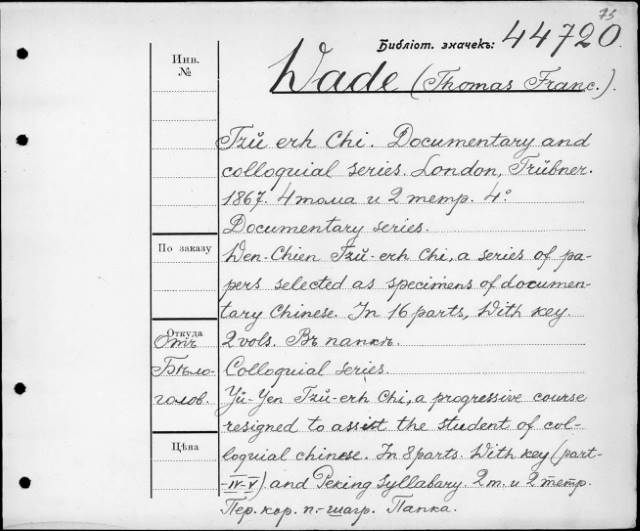 75
Библіот. значекъ: 44720.
Инв.
№
Wade (Thomas Franc.).
Tzŭ erh Chi. Documentary and
colloquial series. London, Trübner.
1867. 4 тома и 2 тетр. 4°
Documentary series.
По заказу
Wen-Chien Tzŭ-erh Chi, a series of pa-
pers selected as specimens of documen-
tary Chinese. In 16 parts, With key.
Откуда
Отъ
2 vols. Въ папкѣ.
Бѣло-
Colloquial series.
голов.
Yü-Yen Tzŭ-erh Chi, a progressive course
resigned to assist the student of col-
Цѣна
loquial chinese. In 8 parts. With key (part-
-IV-V) and Peking Syllabary. 2 т. и 2 тетр.
Пер. кор. п.-шагр. Папка.